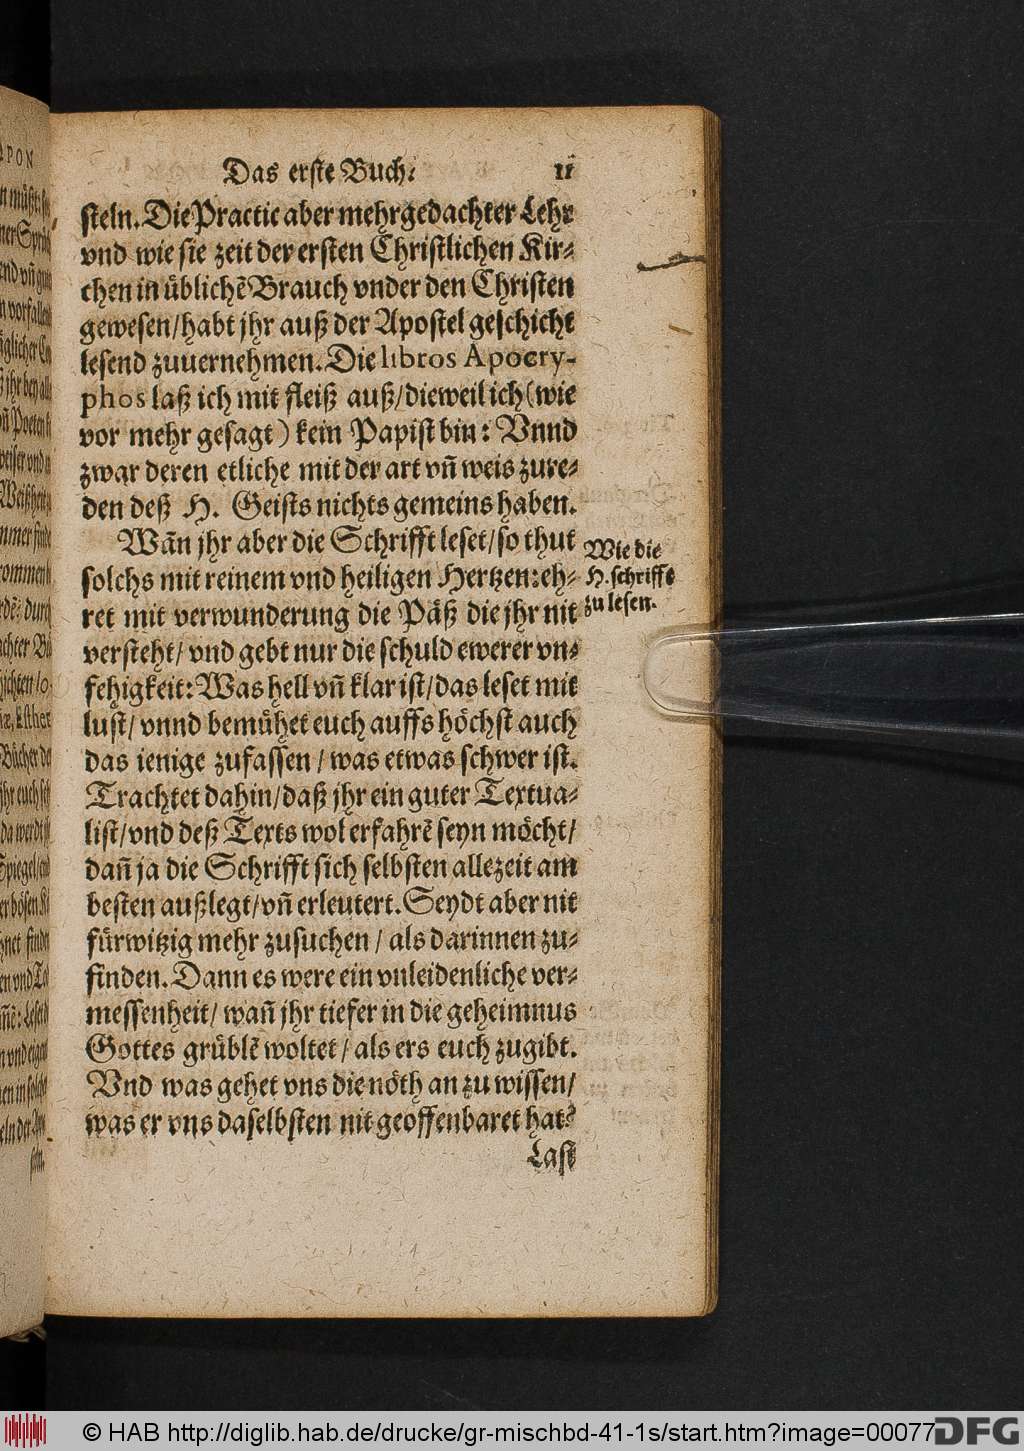 Das erste Buch. 11
steln. Die Practic aber mehrgedachter Lehr
vnd wie sie zeit der ersten Christlichen Kir-
chen in üblichẽ Brauch vnder den Christen
gewesen/habt jhr auß der Apostel geschicht
lesend zuuernehmen. Die libros Apocry-
phos laß ich mit fleiß auß/dieweil ich (wie
vor mehr gesagt) kein Papist bin: Vnnd
zwar deren etliche mit der art vñ weis zure-
den deß H. Geists nichts gemeins haben.
Wañ jhr aber die Schrifft leset/so thut
solchs mit reinem vnd heiligen Hertzen: eh-
ret mit verwunderung die Päß die jhr nit
versteht/vnd gebt nur die schuld ewerer vn-
fehigkeit: Was hell vñ klar ist/das leset mit
lust/vnnd bemühet euch auffs höchst auch
das ienige zufassen/was etwas schwer ist.
Trachtet dahin/daß jhr ein guter Textua-
list/vnd deß Texts wol erfahrẽ seyn möcht/
dañ ja die Schrifft sich selbsten allezeit am
besten außlegt/vñ erleutert. Seydt aber nit
fürwitzig mehr zusuchen/als darinnen zu-
finden. Dann es were ein vnleidenliche ver-
messenheit/wañ jhr tiefer in die geheimnus
Gottes grüblẽ wöltet/als ers euch zugibt.
Vnd was gehet vns die nöth an zu wissen/
was er vns daselbsten nit geoffenbaret hat?
Last
Wie die
H. schrifft
zu lesen.
© HAB http://diglib.hab.de/drucke/gr-mischbd-41-1s/start.htm?image=00077
DFG